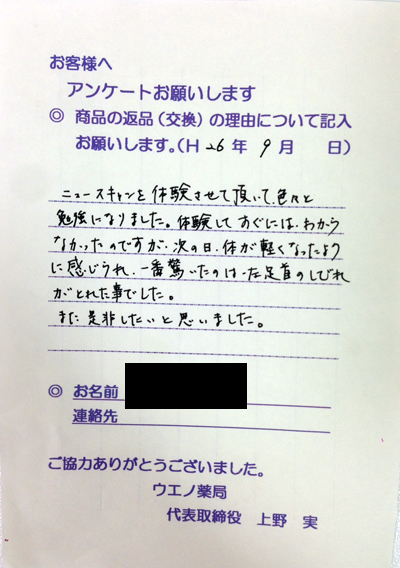 お客様へ
アンケートお願いします
◎ 商品の返品(交換)の理由について記入
お願いします。(H 26 年 9 月 日)
ニュースキャンを体験させて頂いて、色々と
勉強になりました。体験してすぐには、わから
なかったのですが、次の日、体が軽くなったよう
に感じられ、一番驚いたのは、左足首のしびれ
がとれた事でした。
また是非したいと思いました。
◎ お名前
連絡先
ご協力ありがとうございました。
ウエノ薬局
代表取締役 上野 実